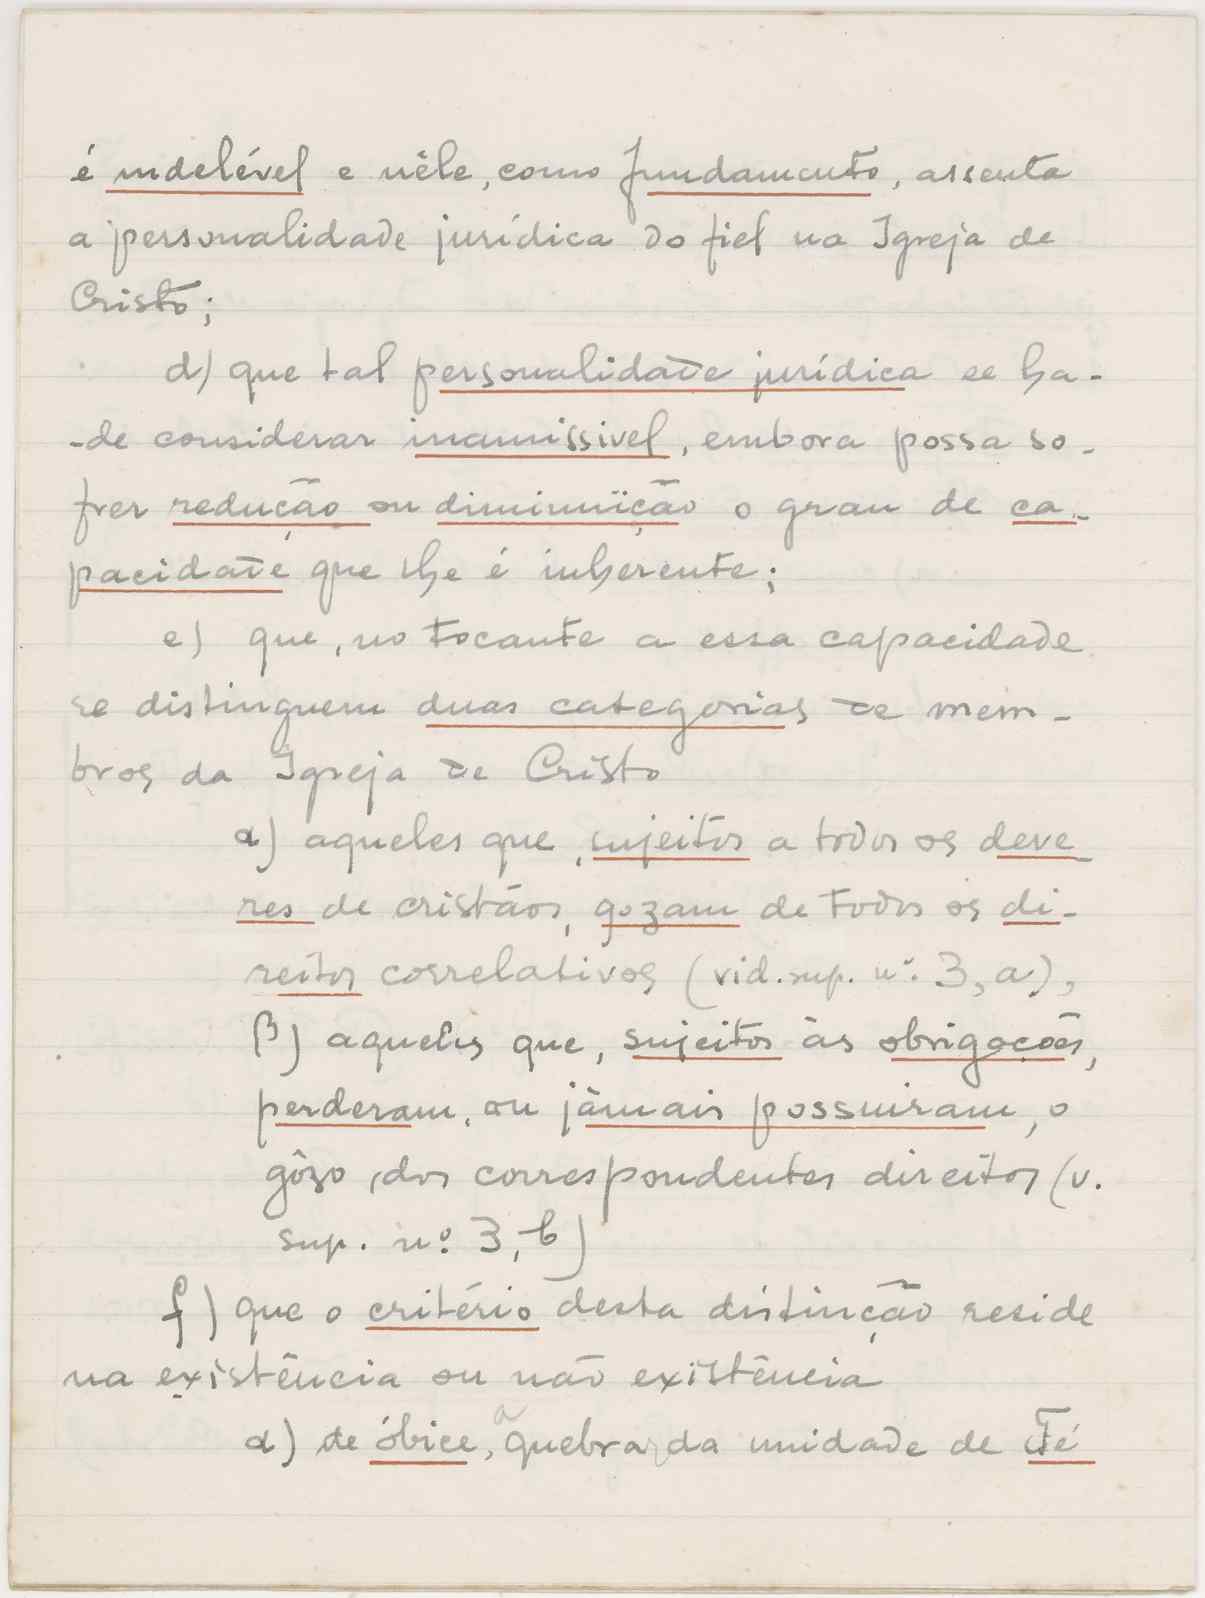 é indelével e nêle, como fundamento, assenta
a personalidade jurídica do fiel na Igreja de
Cristo;
d) que tal personalidade jurídica se ha-
-de considerar inamissivel, embora possa so-
frer redução ou diminuïção o grau de ca-
pacidade que lhe é inherente;
e) que, no tocante a essa capacidade
se distinguem duas categorias de mem-
bros da Igreja de Cristo
α) aqueles que, sujeitos a todos os deve-
res de cristãos, gozam de todos os di-
reitos correlativos (vid. sup. nº. 3, a),
β) aqueles que, sujeitos às obrigações,
perderam, ou jàmais possuiram, o
gôzo, dos correspondentes direitos (v.
sup. nº. 3, b)
f) que o critério desta distinção reside
na existência ou não existência
α) de óbice, a quebra da unidade de Fé